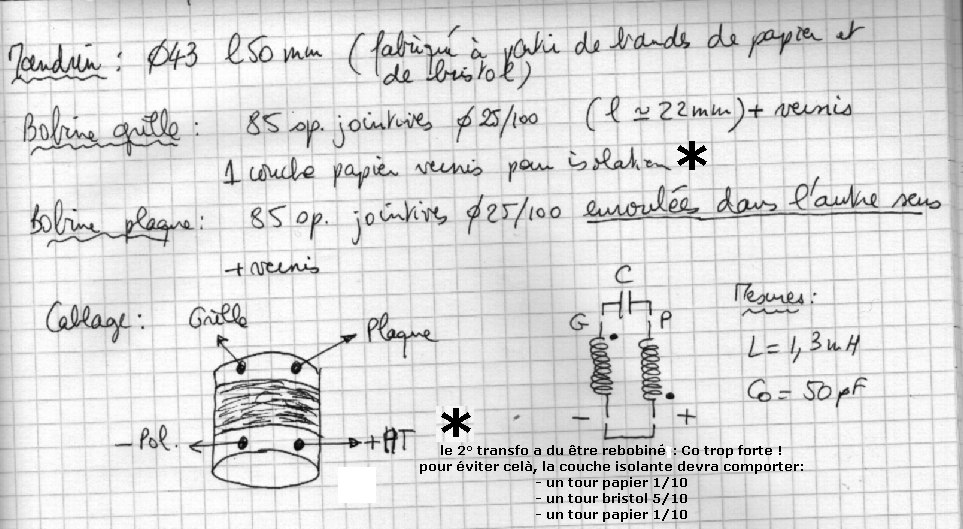 Mandrin : Ø43 l50 mm (fabriqué à partir de bandes de papier et
de bristol)
Bobine grille : 85 sp. jointives ø 25/100 (l ≃ 22mm) + vernis
1 couche papier vernis pour isolation *
Bobine plaque : 85 sp. jointives ø25/100 enroulées dans l'autre sens
+ vernis
Cablage :
Grille
Plaque
- Pol.
+HT
C
G
P
-
+
Mesures :
L = 1,3 mH
Co = 50 pF
*
le 2° transfo a du être rebobiné : Co trop forte !
pour éviter celà, la couche isolante devra comporter:
- un tour papier 1/10
- un tour bristol 5/10
- un tour papier 1/10